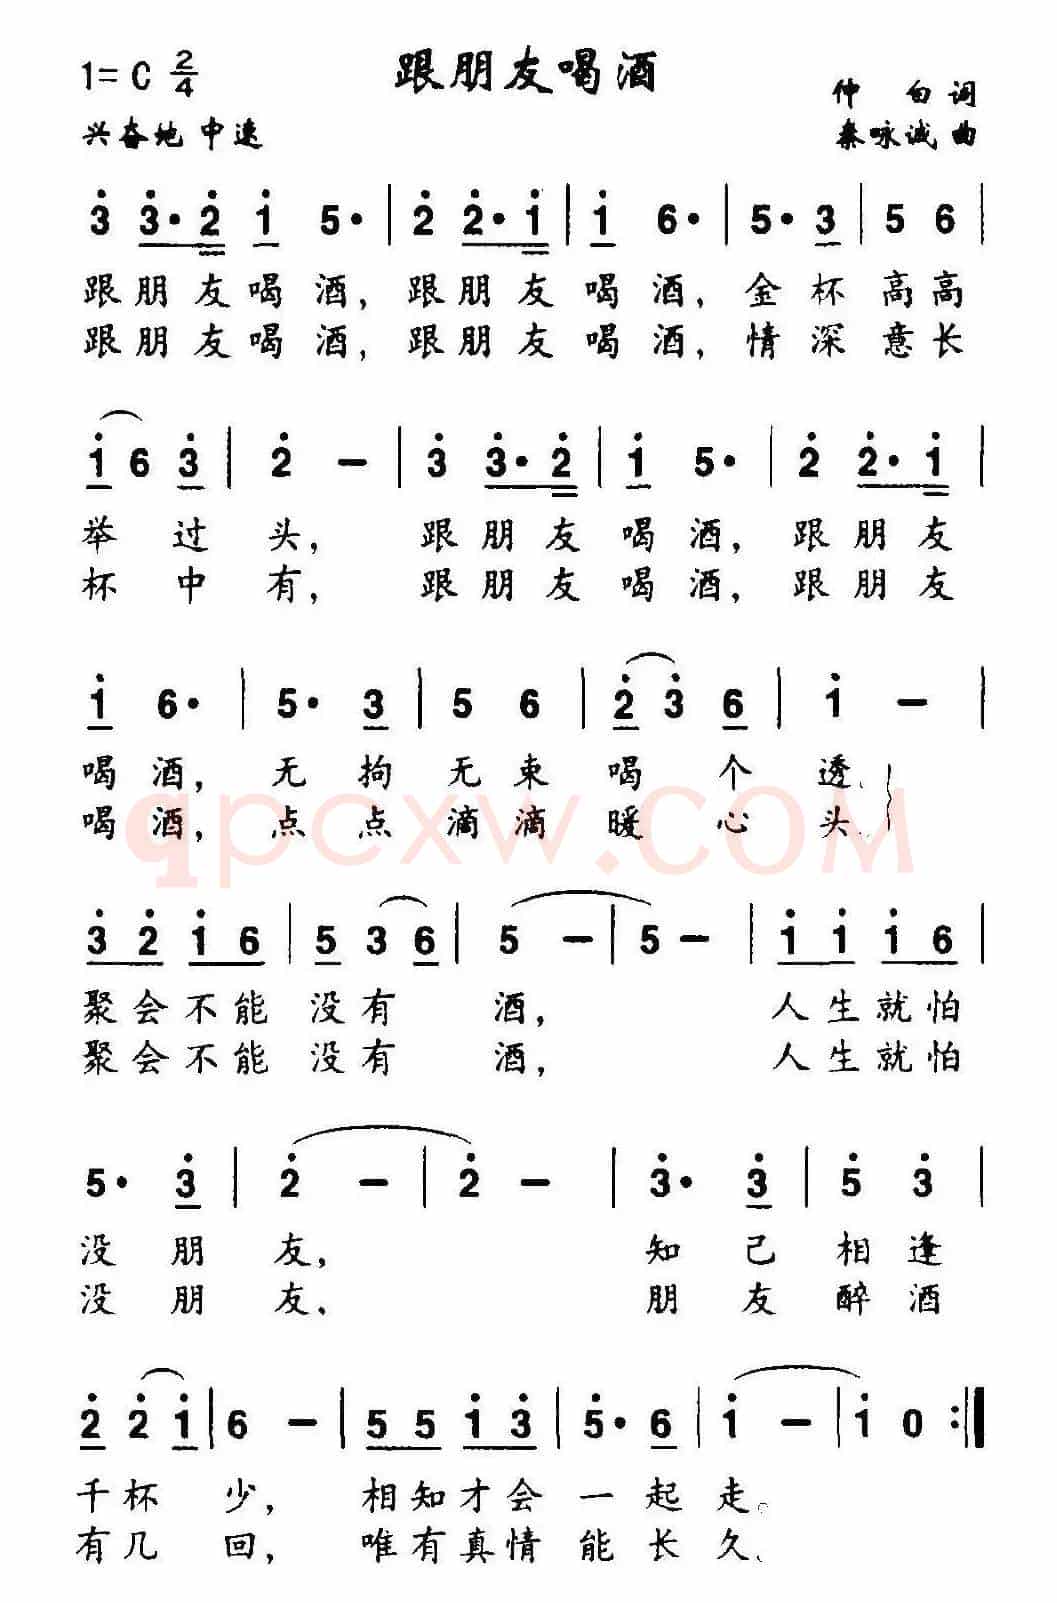 跟朋友喝酒
1=C 2/4
仲 白 词
兴奋地 中速
秦咏诚 曲
3 3·2 1 5· | 2 2·1 | 1 6· | 5·3 | 5 6 |
跟朋友喝酒，跟朋友喝酒，金杯高高
跟朋友喝酒，跟朋友喝酒，情深意长
1 6 3 | 2 － | 3 3·2 | 1 5· | 2 2·1 |
举过头，跟朋友喝酒，跟朋友
杯中有，跟朋友喝酒，跟朋友
1 6· | 5· 3 | 5 6 | 2 3 6 | 1 － |
喝酒，无拘无束喝个透、
喝酒，点点滴滴暖心头、
qpcxw.COM
3 2 1 6 | 5 3 6 | 5 － | 5 － | 1 1 1 6 |
聚会不能没有酒，人生就怕
聚会不能没有酒，人生就怕
5· 3 | 2 － | 2 － | 3· 3 | 5 3 |
没朋友，知己相逢
没朋友、朋友醉酒
2 2 1 | 6 － | 5 5 1 3 | 5· 6 | 1 － | 1 0 :|
千杯少，相知才会一起走。
有几回，唯有真情能长久、